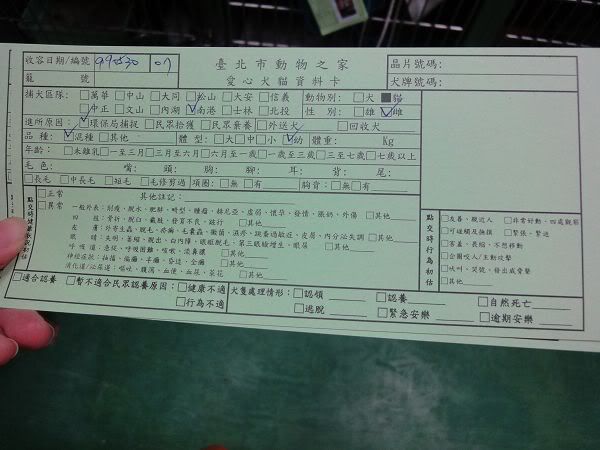 收容日期/編號 990530 07 臺北市動物之家 晶片號碼:
籠 號 愛心犬貓資料卡 犬牌號碼:
捕犬區隊: □萬華 □中山 □大同 □松山 □大安 □信義 動物別: □犬 ■貓
□中正 □文山 □內湖 ☑南港 □士林 □北投 性 別: □雄 ☑雌
進所原因: ☑環保局捕捉 □民眾拾獲 □民眾棄養 □外送犬 □回收犬
品 種: ☑混種 □其他 體 型: □大 □中 □小 ☑幼 體重: Kg
年齡: □未離乳 □一至三月 □三月至六月 □六月至一歲 □一歲至三歲 □三至七歲 □七歲以上
毛 色: 嘴: 頭: 胸: 腳: 耳: 背: 尾:
□長毛 □中長毛 □短毛 □毛修剪過 項圈: □無 □有 胸背: □無 □有
點交時健康狀況初估
□正常 其他註記:
□異常 一般外表: 削瘦、脫水、肥胖、畸型、腫瘤、赫尼亞、虛弱、懷孕、發情、脹奶、外傷 □其他
四 肢: 骨折、脫臼、截肢、發育不良、跛行 □其他
皮 膚: 外寄生蟲、脫毛、疥癬、毛囊蟲、黴菌、濕疹、跳蚤過敏症、皮屑、內分泌失調 □其他
眼 睛: 失明、萎縮、脫出、白內障、眼瞼脫毛、第三眼瞼增生、眼屎 □其他
呼 吸 道: 急促、呼吸困難、咳嗽、流鼻膿 □其他
神經症狀: 抽搐、偏癱、半癱、昏迷、全癱 □其他
消化道/泌尿道: 嘔吐、腹瀉、血便、血尿、菜花 □其他
點交時行為初估
□友善、親近人 □非常好動、四處觀察
□可碰觸及撫摸 □緊張、緊迫
□害羞、畏縮、不想移動
□會圖咬人/主動攻擊
□吠叫、哭號、發出威脅聲
□其他
□適合認養 □暫不適合民眾認養原因: □健康不適 犬隻處理情形: □認領 □認養 □自然死亡
□行為不適 □逃脫 □緊急安樂 □逾期安樂